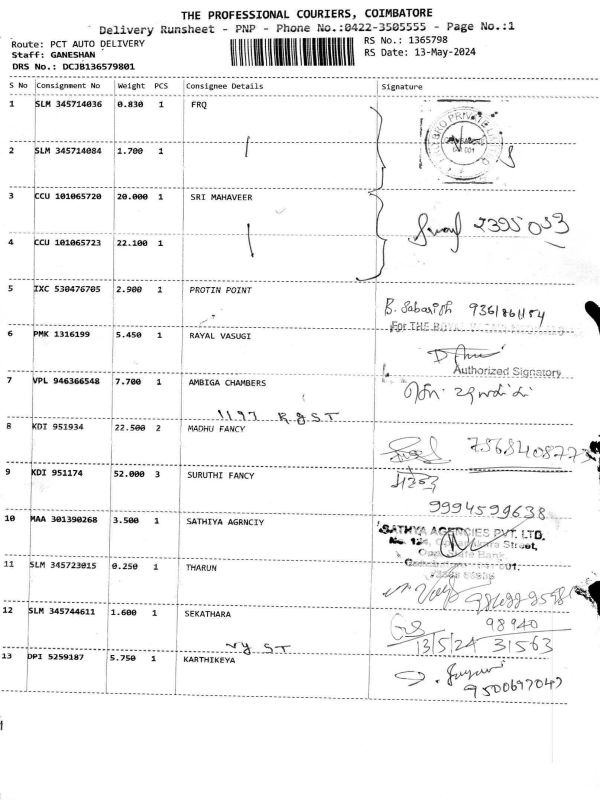 THE PROFESSIONAL COURIERS, COIMBATORE
Delivery Runsheet - PNP - Phone No.:0422-3505555 - Page No.:1
Route: PCT AUTO DELIVERY
RS No.: 1365798
Staff: GANESHAN
RS Date: 13-May-2024
DRS No.: DCJB136579801
S No Consignment No Weight PCS Consignee Details Signature
1 SLM 345714036 0.830 1 FRQ
2 SLM 345714084 1.700 1
3 CCU 101065720 20.000 1 SRI MAHAVEER
2395053
4 CCU 101065723 22.100 1
5 IXC 530476705 2.900 1 PROTIN POINT
B. Sabarish
For THE ROYAL
6 PMK 1316199 5.450 1 RAYAL VASUGI
Authorized Signatory
7 VPL 946366548 7.700 1 AMBIGA CHAMBERS
1197 R g ST
8 KDI 951934 22.500 2 MADHU FANCY
9 KDI 951174 52.000 3 SURUTHI FANCY
9994599638
10 MAA 301390268 3.500 1 SATHIYA AGRNCIY
SATHYA AGENCIES PVT. LTD.
11 SLM 345723015 0.250 1 THARUN
12 SLM 345744611 1.600 1 SEKATHARA
98940
13/5/24 31563
Vy ST
13 DPI 5259187 5.750 1 KARTHIKEYA
9500697047